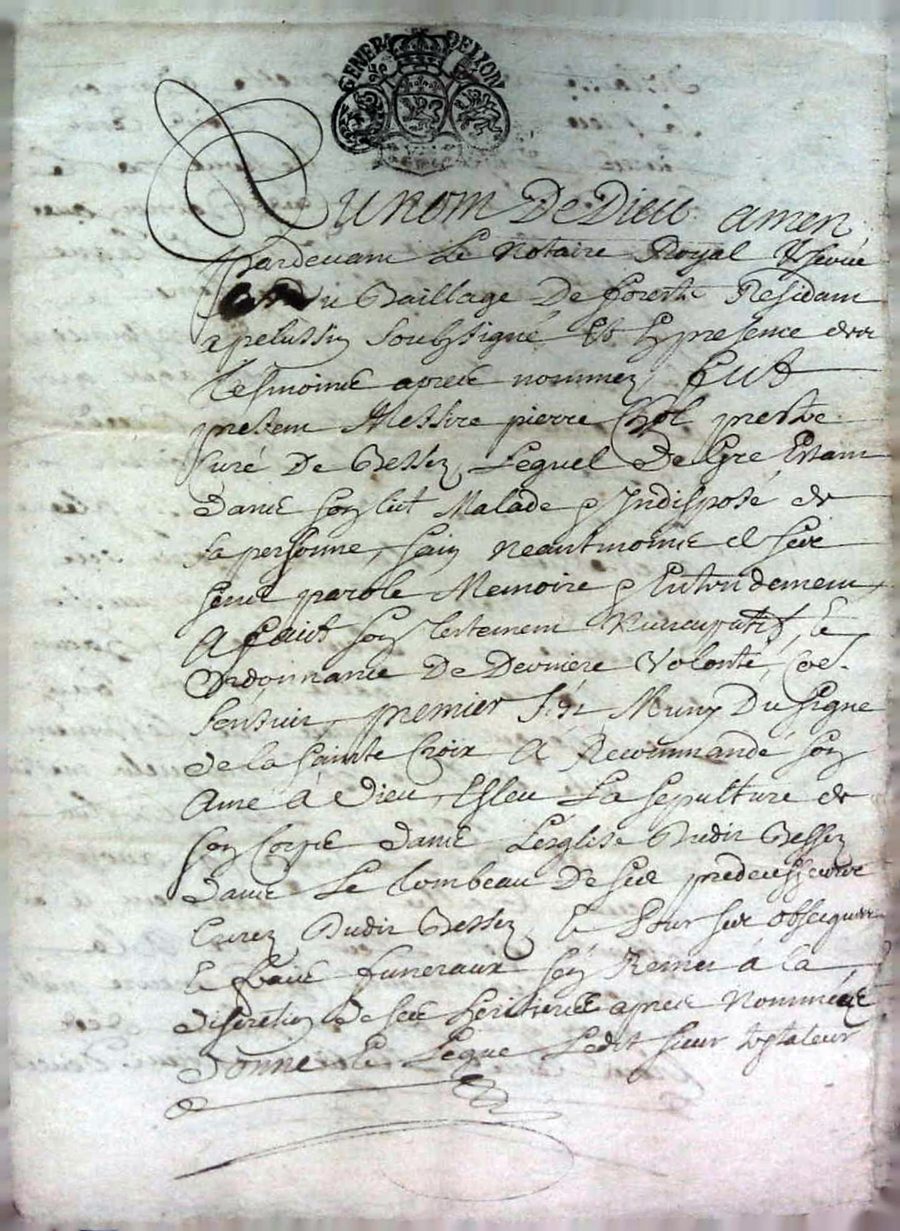 GENERA DE LION
Au nom De Dieu amen
Pardevant Le Notaire Royal
Du Baillage De forestz Residant
a pelussin soubzsigné Et En presence des
tesmoins apres nommez, fut
present Messire pierre Chol prestre
Curé De Bessey, Lequel De Gré Estant
Dans son lict Malade & Indisposé de
sa personne, sain neantmoins de ses
sens parole Memoire & Entendement,
A faict son testement Nuncupatif, &
Ordonnance De Derniere Volonté, Co͞e
sensuit, premier s'est Muny Du signe
de la sainte Croix A Recommandé son
Ame à Dieu, Esleu La sepulture de
son Corps dans L'esglise Dudit Bessey
Dans Le tombeau De ses predecesseurs
Curez Dudit Bessey, & Pour ses obseques
& frais funeraux s'en Remet à la
discretion de ses heritiers apres Nommées
Donne & Legue Ledit sieur testateur